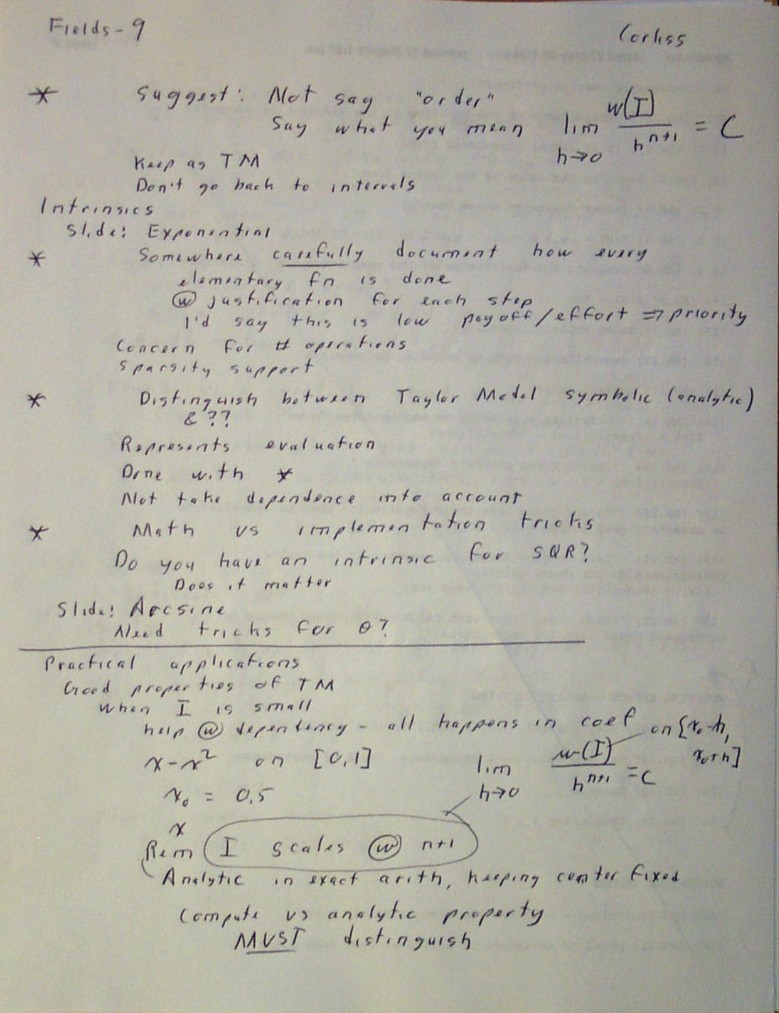 Fields-9
Corliss
* Suggest: Not say "order"
Say what you mean lim h→0 w(I)/h^(n+1) = C
Keep as TM
Don't go back to intervals
Intrinsics
Slide: Exponential
* Somewhere carefully document how every
elementary fn is done
ⓦ justification for each step
I'd say this is low payoff/effort ⇒ priority
Concern for # operations
Sparsity support
* Distinguish between Taylor Model symbolic (analytic)
& ??
Represents evaluation
Done with *
Not take dependence into account
* Math vs implementation tricks
Do you have an intrinsic for SQR?
Does it matter
Slide: Arcsine
Need tricks for θ?
Practical applications
Good properties of TM
When I is small
help ⓦ dependency - all happens in coef on [x₀-h,
x₀+h]
x-x² on [0,1] lim h→0 w(I)/h^(n+1) = C
x₀ = 0.5
x
Rem I scales ⓦ n+1
Analytic in exact arith, keeping center fixed
Compute vs analytic property
MUST distinguish